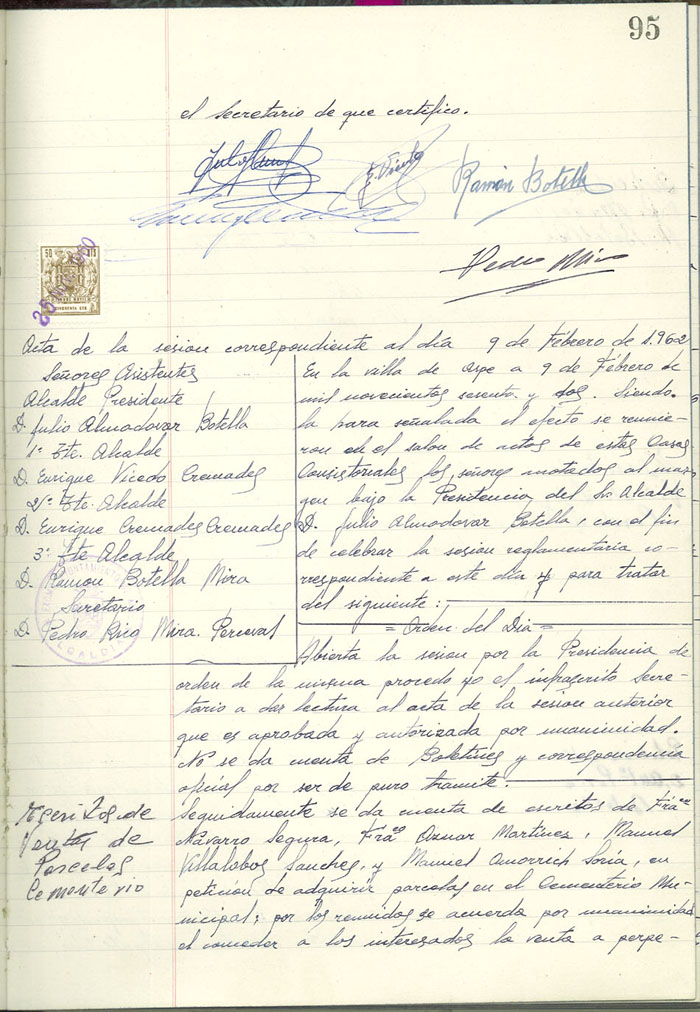 95
el Secretario de que certifico.
Ramón Botella
Pedro Mira
50 CTS
Acta de la sesion correspondiente al día 9 de Febrero de 1.962
Señores Asistentes
Alcalde Presidente
D. Julio Almodovar Botella
1º Tte. Alcalde
D. Enrique Vicedo Cremades
2º Tte. Alcalde
D. Enrique Cremades Cremades
3º Tte Alcalde
D. Ramon Botella Mira
Secretario
D. Pedro Rico Mira. Perceval
En la villa de Aspe a 9 de Febrero de
mil novecientos sesenta y dos. Siendo
la hora señalada al efecto se reunie-
ron en el salon de actos de estas Casas
Consistoriales los señores anotados al mar-
gen bajo la Presidencia del Sr. Alcalde
D. Julio Almodovar Botella, con el fin
de celebrar la sesion reglamentaria co-
rrespondiente a este día y para tratar
del siguiente:
= Orden del Dia =
Abierta la sesion por la Presidencia de
orden de la misma procedo yo el infrascrito Secre-
tario a dar lectura al acta de la sesion anterior
que es aprobada y autorizada por unanimidad.
No se da cuenta de Boletines y correspondencia
oficial por ser de puro tramite.
Escritos de
Ventas de
Parcelas
Cementerio
Seguidamente se da cuenta de escritos de Frᵃⁿ
Navarro Segura, Frᵃⁿ Aznar Martínez, Manuel
Villalobos Sanchez, y Manuel Amorrich Soria, en
peticion de adquirir parcelas en el Cementerio Mu-
nicipal; por los reunidos se acuerda por unanimidad
el conceder a los interesados la venta a perpe-